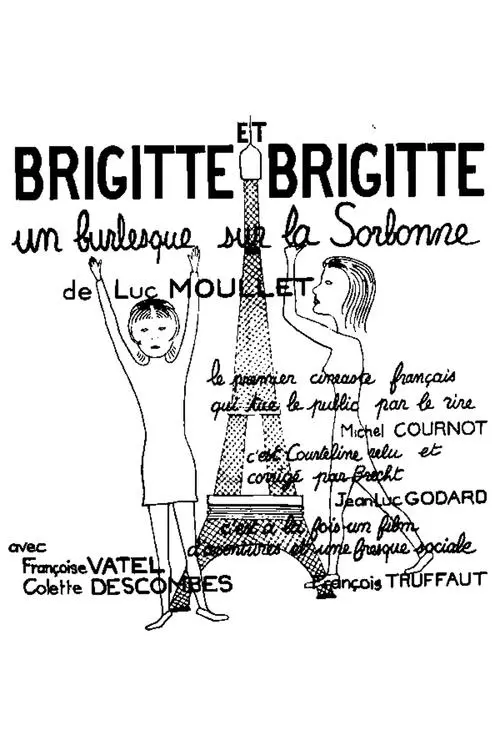 ET
BRIGITTE BRIGITTE
un burlesque sur la Sorbonne
de Luc MOULLET
le premier cinéaste français
qui tue le public par le rire
Michel COURNOT
c'est Courteline relu et
corrigé par Brecht
Jean Luc GODARD
c'est à la fois un film
d'aventures et une fresque sociale
François TRUFFAUT
avec
Françoise VATEL
Colette DESCOMBES